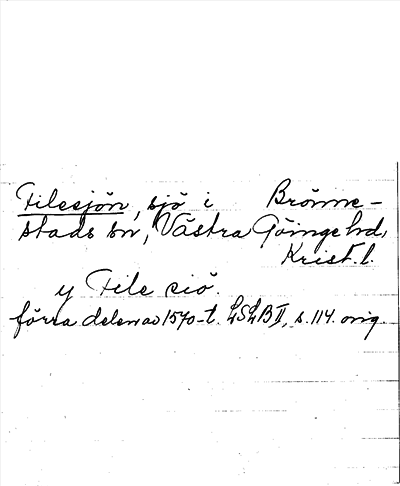 Filesjön, sjö i Brönne-
stads sn, Västra Göinge hd,
Krist. l.
y File siö.
förra delen av 1570-t. LSLB II, s. 114. orig.